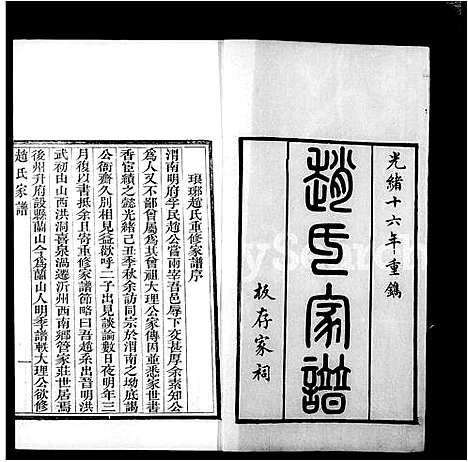 光緒十六年重鐫
趙氏家譜
板存家祠
琅琊趙氏重修家譜序
渭南明府字民趙公嘗兩宰吾邑辱下交甚厚余素知公
為人又不鄙曾屬為其曾祖大理公家傳因並悉家世書
香宦績之懿光緒己丑季秋余訪同宗於渭南之坳底謁
公衙齋久別相見益歡呼二子出見談論數日夜明年三
月復以書抵余且寄重修家譜節略曰吾趙系出晉明洪
武初由山西洪洞喜泉溝遷沂州西南鄉管家莊世居焉
後州升府設縣蘭山今為蘭山人明季譜軼大理公欲修
趙氏家譜
一